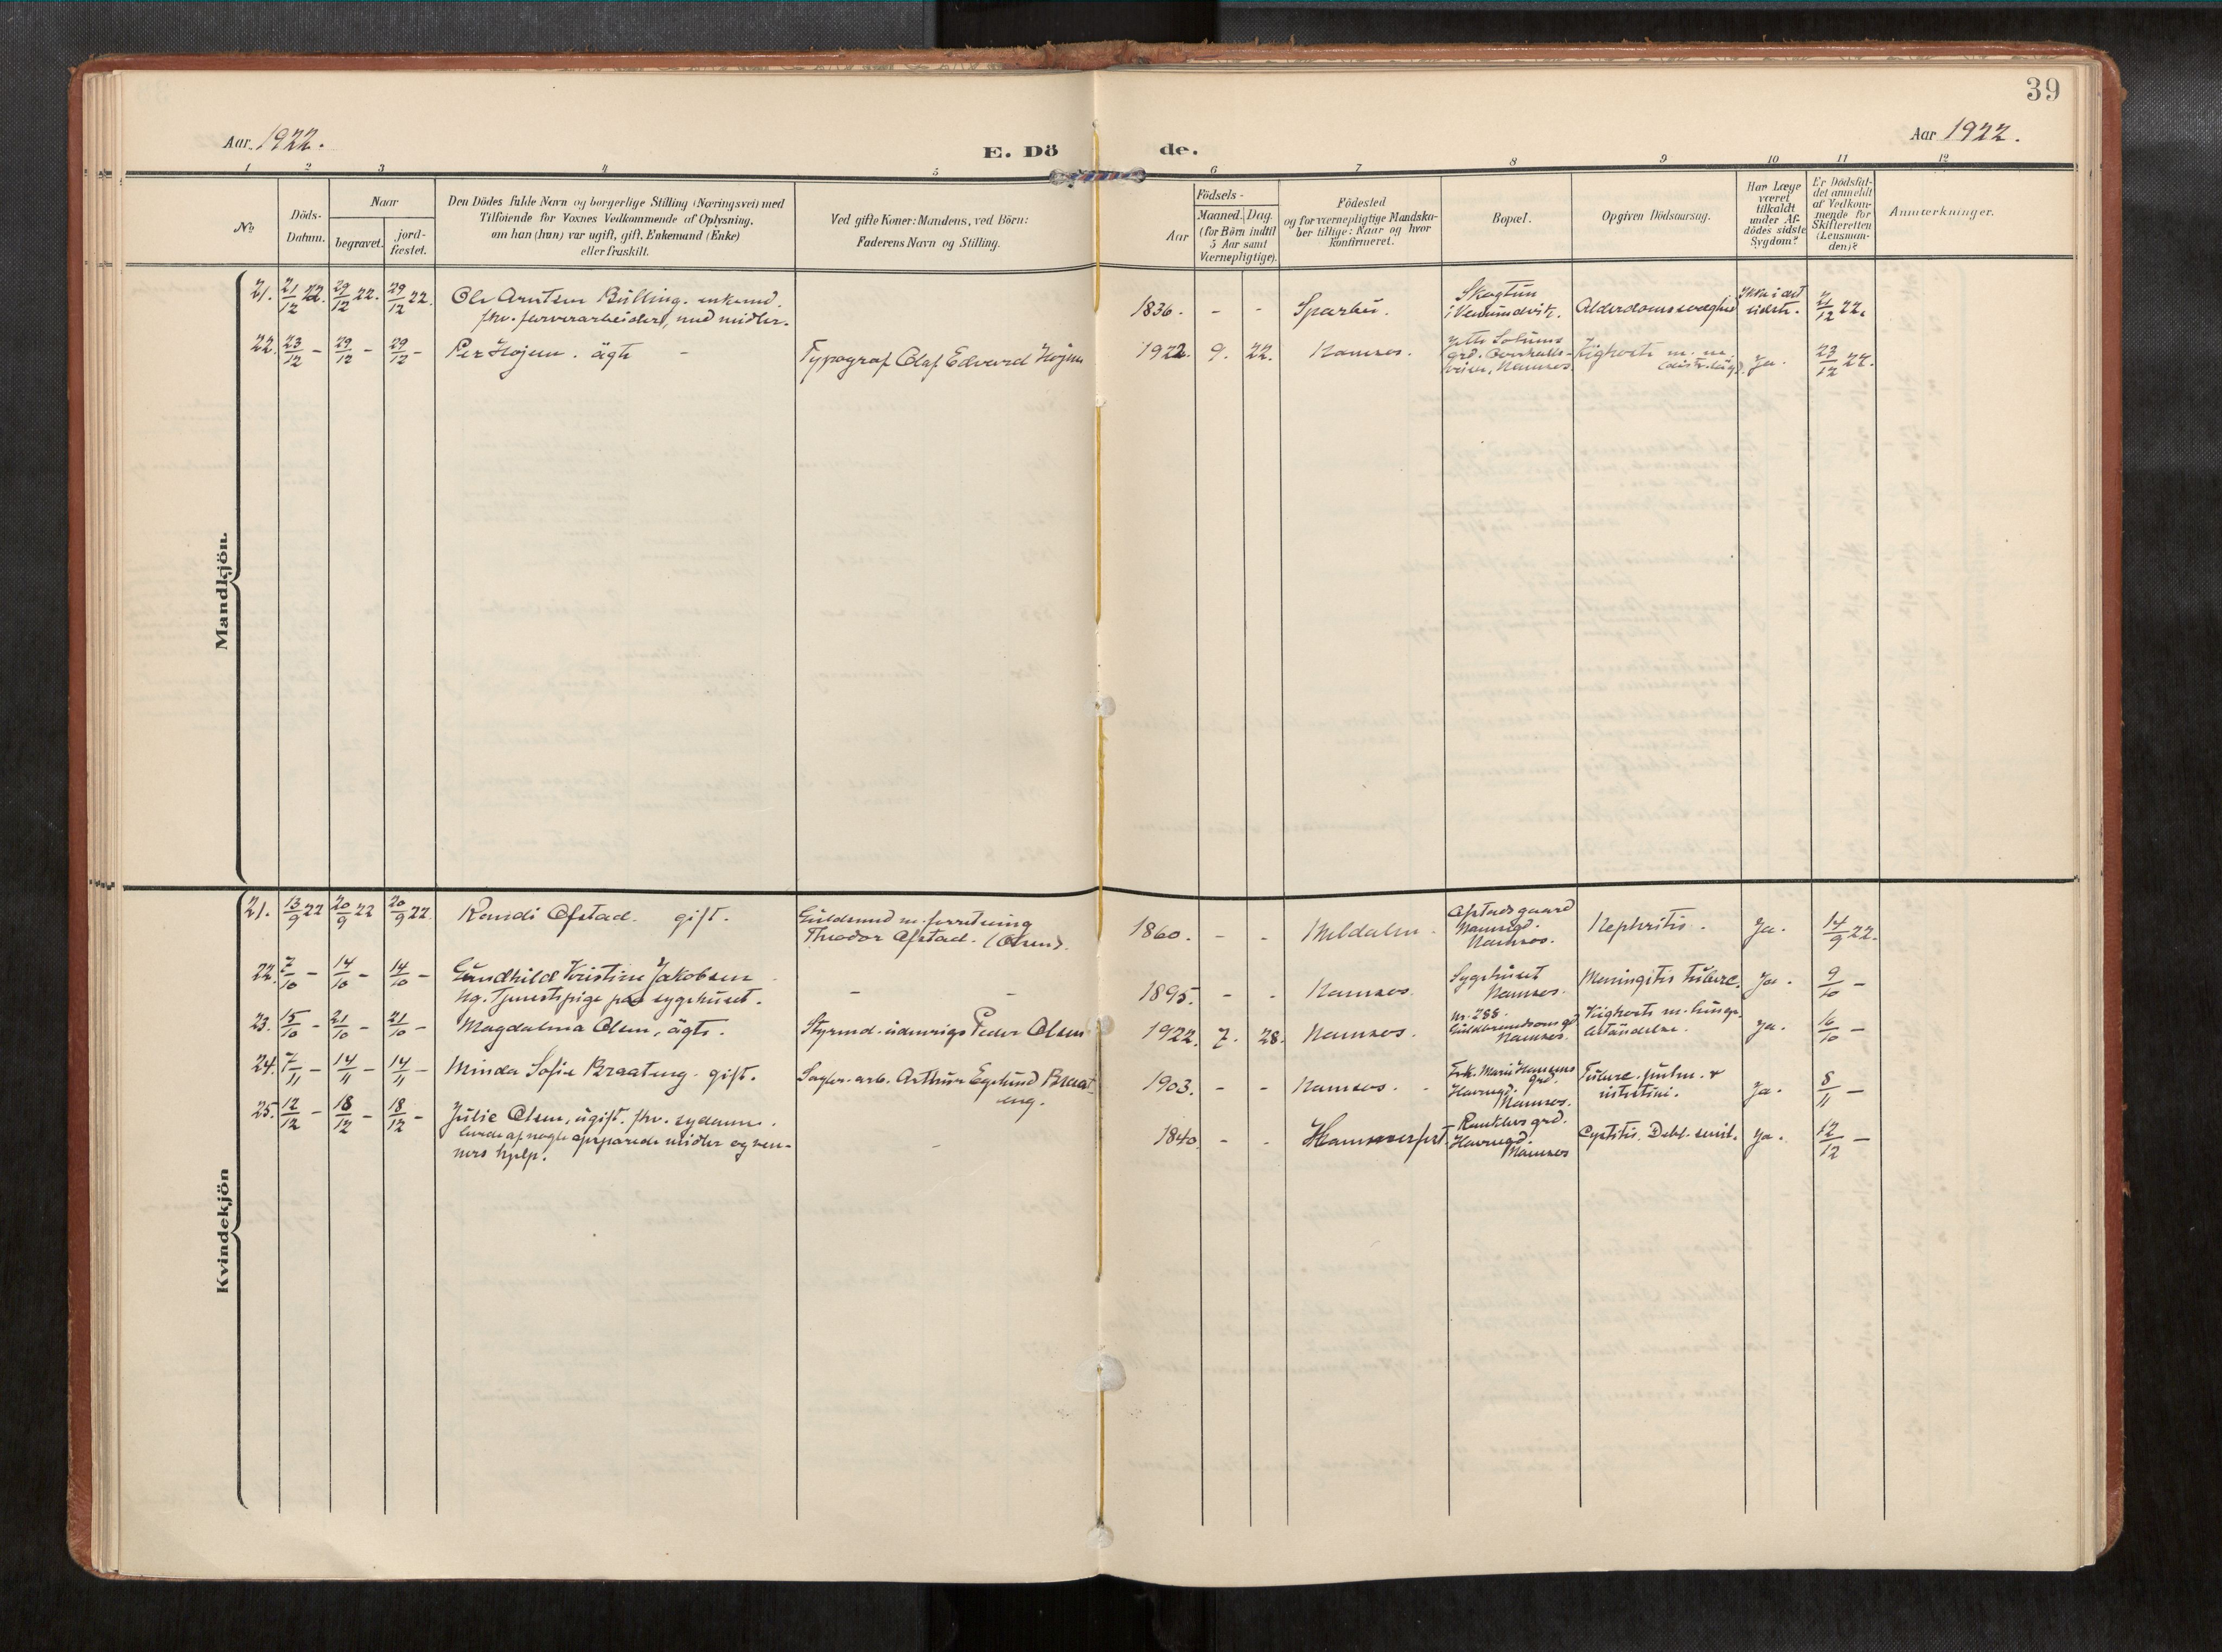 39
Aar 1922.
E. Dö de.
Aar 1922.
1 2 3 4 5 6 7 8 9 10 11 12
No
Döds-Datum.
Naar
begravet.
jord-fæstet.
Den Dödes fulde Navn og borgerlige Stilling (Næringsvei) med
Tilføiende for Voxnes Vedkommende af Oplysning,
om han (hun) var ugift, gift, Enkemand (Enke)
eller fraskilt.
Ved gifte Koner: Mandens, ved Börn:
Faderens Navn og Stilling.
Födsels-
Aar
Maaned. Dag.
(for Börn indtil
5 Aar samt
Værnepligtige).
Födested
og for værnepligtige Mandska-
ber tillige: Naar og hvor
konfirmeret.
Bopæl.
Opgiven Dödsaarsag.
Har Læge
været
tilkaldt
under Af-
dödes sidste
Sygdom?
Er Dödsfal-
det anmeldt
af Vedkom-
mende for
Skifteretten
(Lensman-
den)?
Anmærkninger.
Mandkjön.
21. 21/12 22. 29/12 22. 29/12 22. Ole Arntsen Bülling. enkemd.
fhv. farverarbeider, med midler.
1836. - - Sparbu. Skogtun
i Vemundvik. Alderdomssvaghed Ikke i det sidste. 21/12 22.
22. 23/12 - 29/12 - 29/12 - Per Höjem. ägte - Typograf Olaf Edvard Höjem 1922. 9. 22. Namsos.
Namsos. Kighoste m. m. Ja. 23/12 22.
Kvindekjön
21. 13/9 22 20/9 22 20/9 22. Randi Ofstad. gift. Guldsmed m. forretning
Theodor Ofstad. (Olsen). 1860. - - Meldalen. Ofstadgaard
Namsgd.
Namsos. Nephritis. Ja. 14/9 22.
22. 7/10 - 14/10 - 14/10 - Gundhild Kristine Jakobsen
Ug. Tjenestepige paa sygehuset. - - 1895. - - Namsos. Sygehuset
Namsos. Meningitis tuberc. Ja. 9/10 -
23. 15/10 - 21/10 - 21/10 - Magdalena Olsen, ägte. Styrmd. udenrigs Peder Olsen 1922. 7. 28. Namsos. nr. 288.
Guldbrandsons gd
Namsos. Kighoste m. lunge-
betändelse. Ja. 16/10 -
24. 7/11 - 14/11 - 14/11 - Minda Sofie Braateng. gift. Sagbr. arb. Arthur Egelund Braat-
eng. 1903. - - Namsos. Enk. Marie Hansens
grd.
Havnegd.
Namsos. Tuberc. pulm. &
intestini. Ja. 8/11 -
25. 12/12 - 18/12 - 18/12 - Julie Olsen, ugift. fhv. sydame.
levde af nogle opsparede midler og ven-
ners hjelp. - 1840. - - Hammerfest.
grd.
Havnegd.
Namsos Cystitis. Debil. senil. Ja. 12/12 -